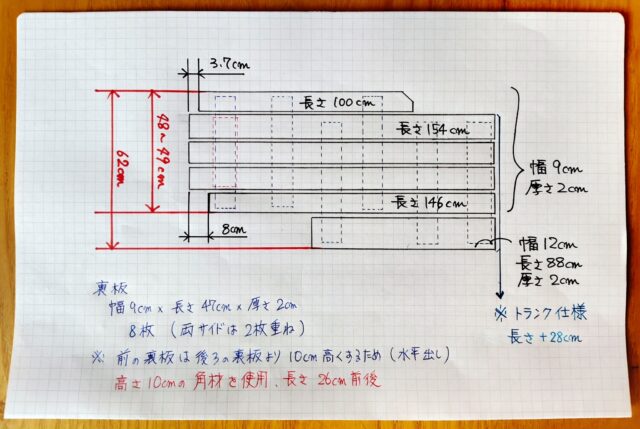 3.7cm
長さ 100cm
長さ 154cm
48~49cm
62cm
幅 9cm
厚さ 2cm
長さ 146cm
8cm
幅 12cm
長さ 88cm
厚さ 2cm
裏板
幅 9cm x 長さ 47cm x 厚さ 2cm
8枚 (両サイドは 2枚重ね)
※ トランク仕様
長さ +28cm
※ 前の裏板は後ろの裏板より 10cm 高くするため (水平出し)
高さ 10cmの 角材を使用、長さ 26cm 前後